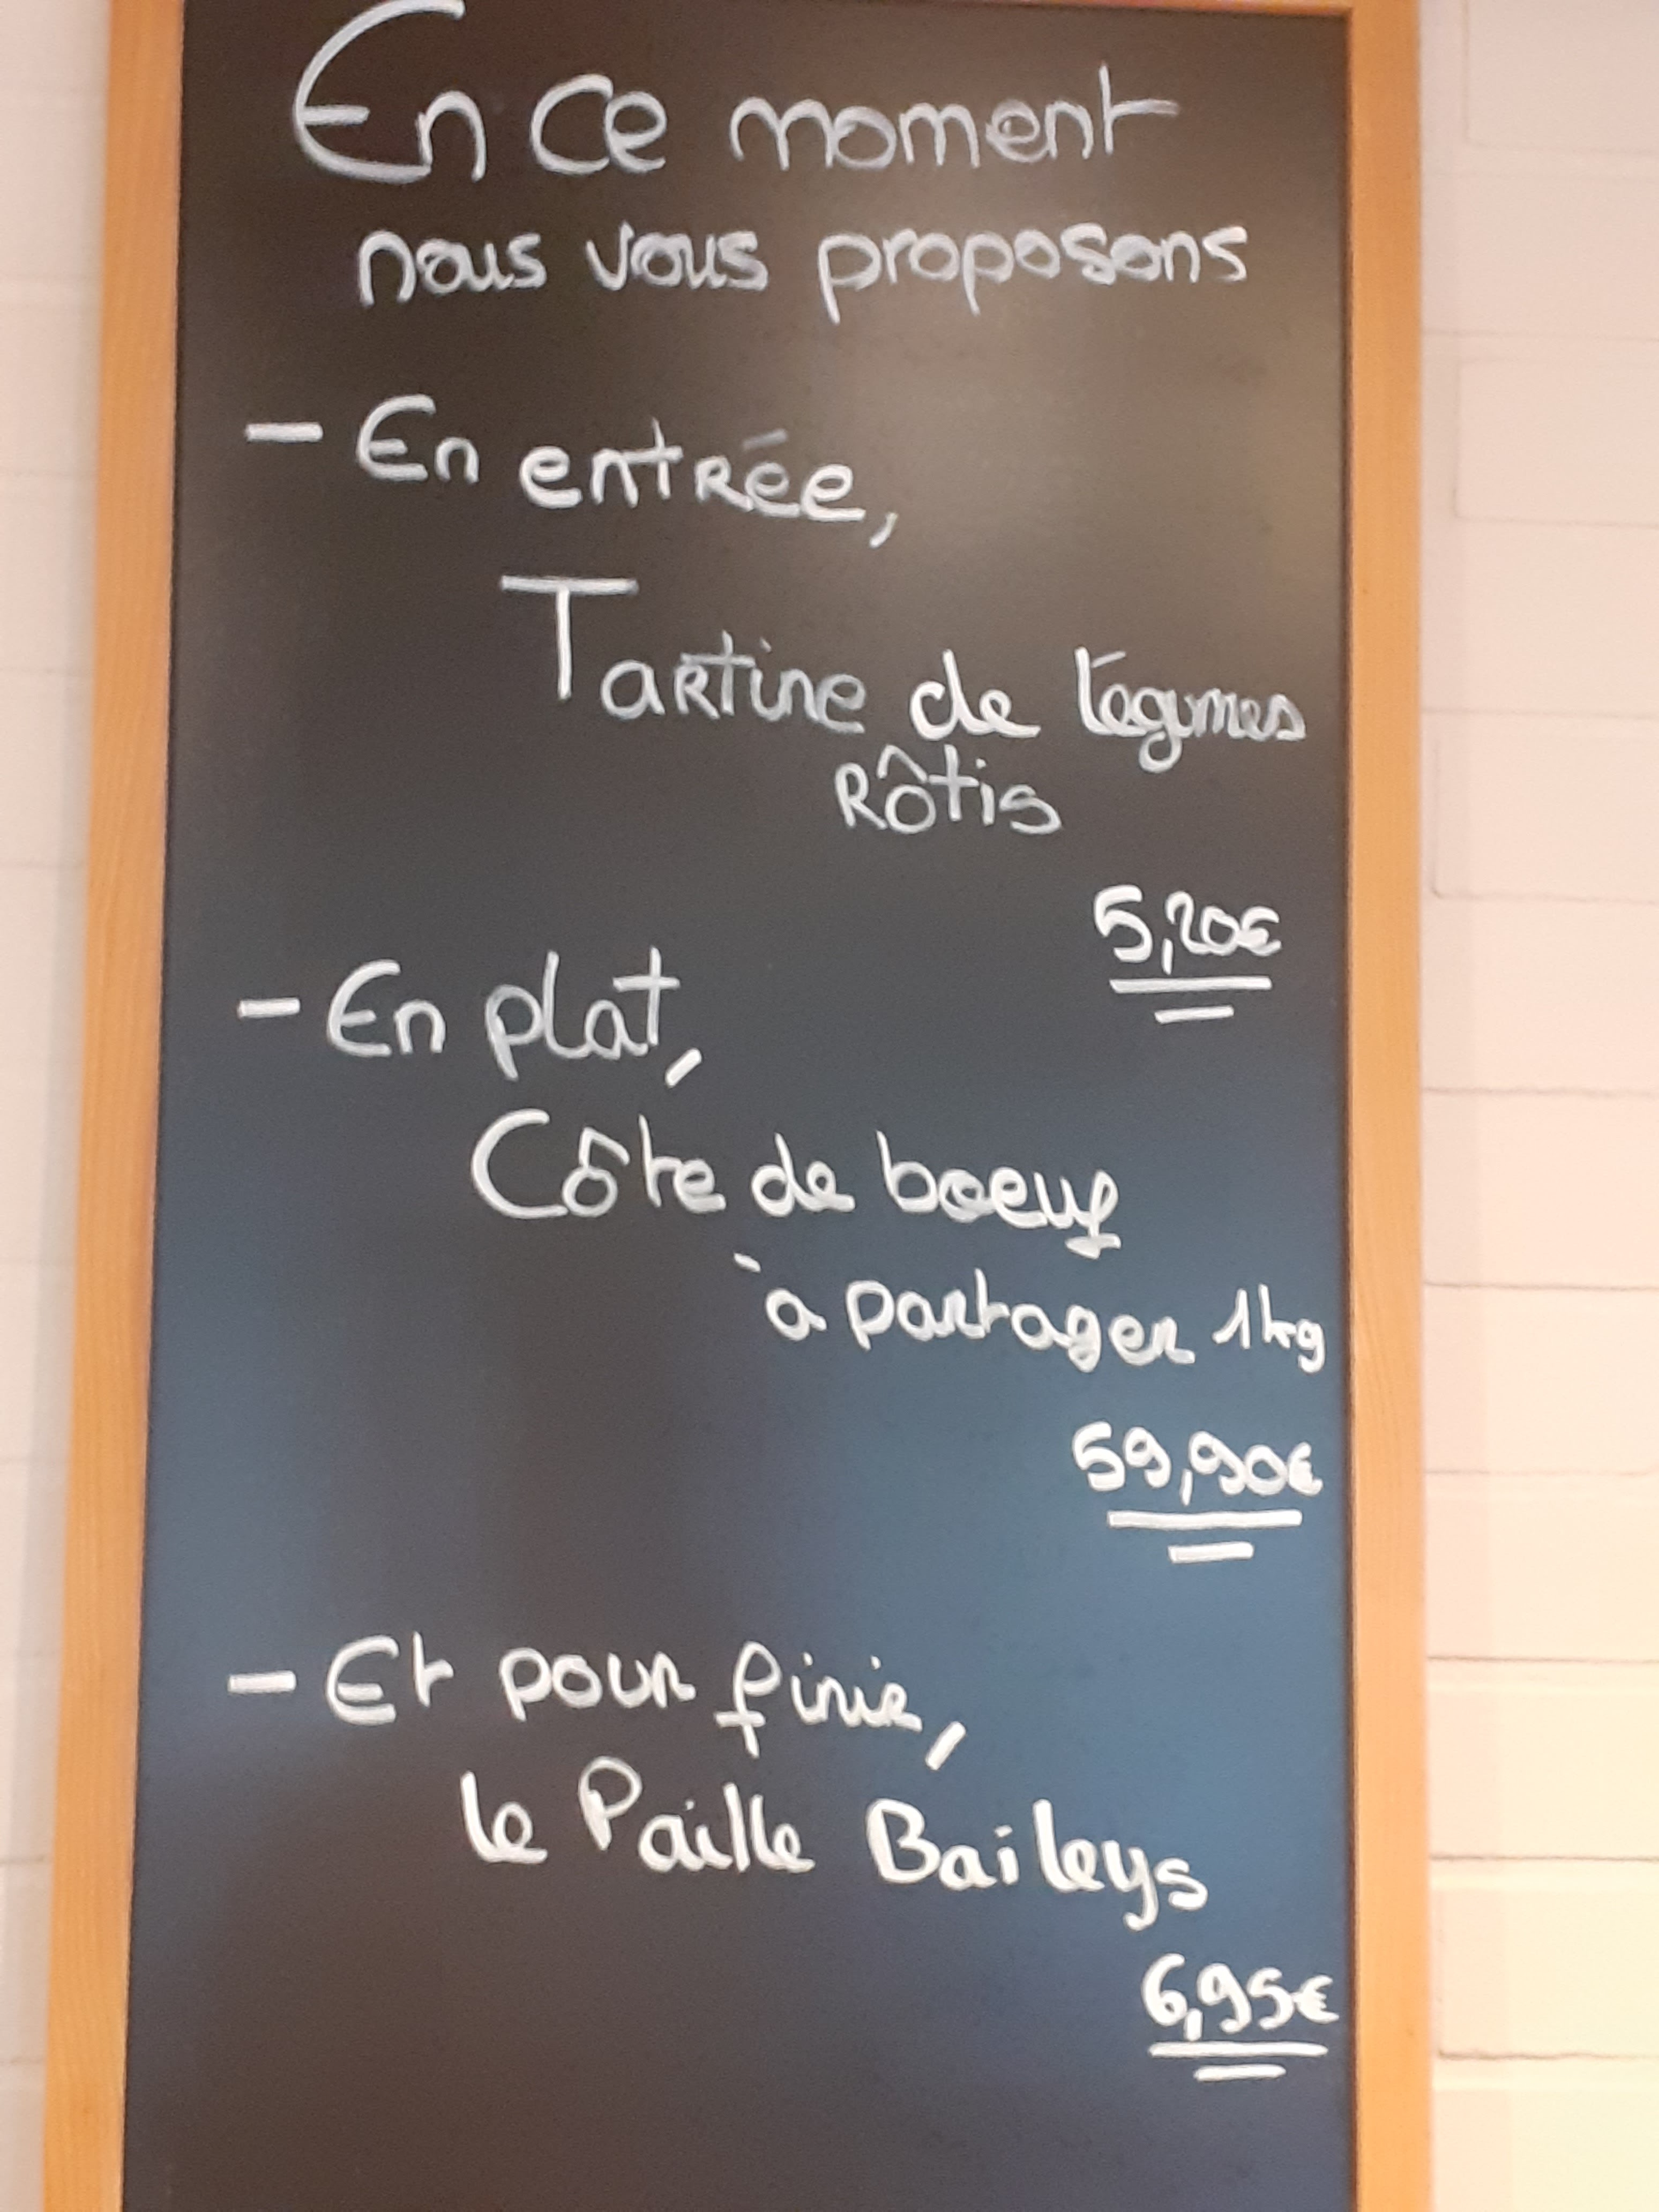 En ce moment
nous vous proposons
- En entrée,
Tartine de légumes
Rôtis
5,20€
- En plat,
Côte de boeuf
à partager 1kg
59,90€
- Et pour finir,
le Paille Baileys
6,95€